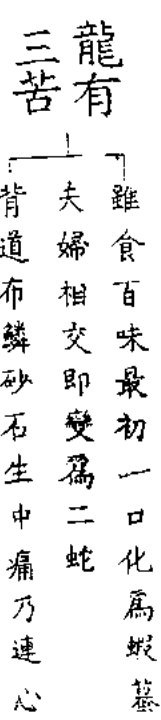 龍有
三苦
雖食百味最初一口化爲蝦蟇
夫婦相交即變爲二蛇
背道布鱗砂石生中痛乃連心